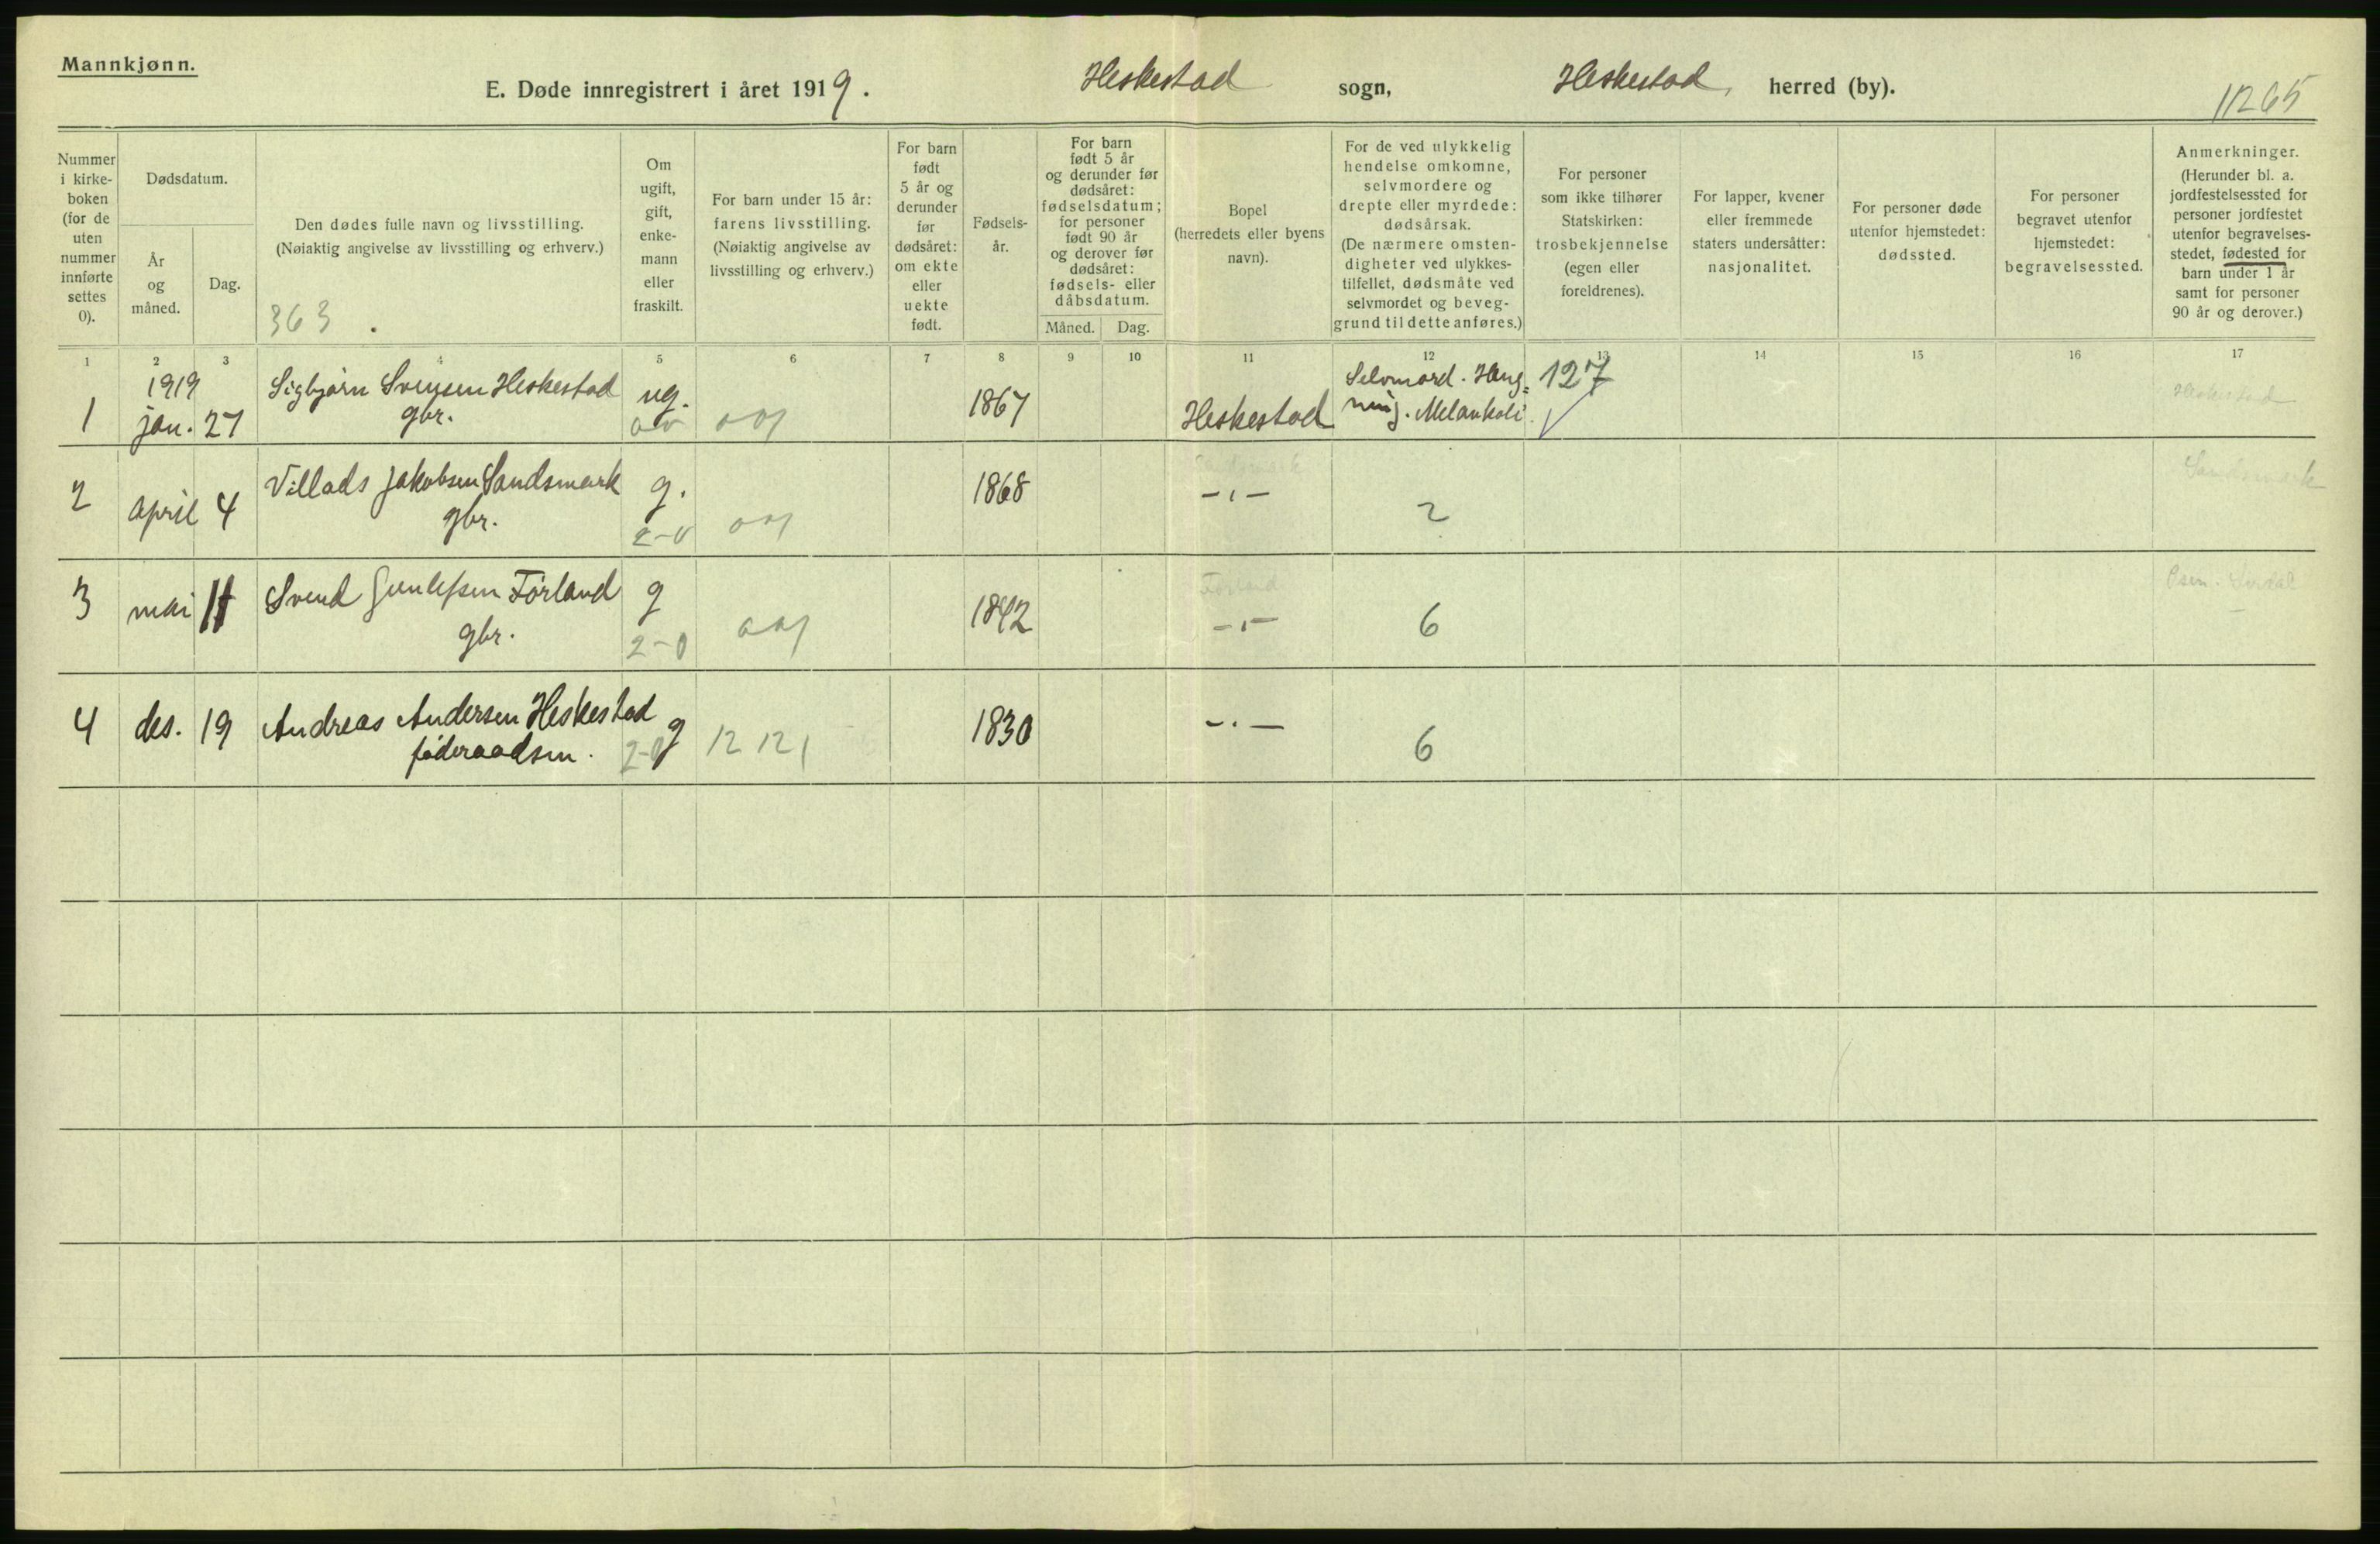 Mannkjønn.
E. Døde innregistrert i året 1919. Heskestad sogn, Heskestad herred (by).
1265
Nummer i kirke-boken (for de uten nummer innførte settes 0).
Dødsdatum.
År og måned.
Dag.
Den dødes fulle navn og livsstilling.
(Nøiaktig angivelse av livsstilling og erhverv.)
363.
Om ugift, gift, enke-mann eller fraskilt.
For barn under 15 år: farens livsstilling.
(Nøiaktig angivelse av livsstilling og erhverv.)
For barn født 5 år og derunder før dødsåret: om ekte eller uekte født.
Fødsels-år.
For barn født 5 år og derunder før dødsåret: fødselsdatum; for personer født 90 år og derover før dødsåret: fødsels- eller dåbsdatum.
Måned. Dag.
Bopel (herredets eller byens navn).
For de ved ulykkelig hendelse omkomne, selvmordere og drepte eller myrdede: dødsårsak.
(De nærmere omsten-digheter ved ulykkes-tilfellet, dødsmåte ved selvmordet og beveg-grund til dette anføres.)
For personer som ikke tilhører Statskirken: trosbekjennelse (egen eller foreldrenes).
For lapper, kvener eller fremmede staters undersåtter: nasjonalitet.
For personer døde utenfor hjemstedet: dødssted.
For personer begravet utenfor hjemstedet: begravelsessted.
Anmerkninger.
(Herunder bl. a. jordfestelsessted for personer jordfestet utenfor begravelses-stedet, fødested for barn under 1 år samt for personer 90 år og derover.)
1 2 3 4 5 6 7 8 9 10 11 12 13 14 15 16 17
1919 Sigbjørn Svensen Heskestad ug. Selvmord. Heng= 127 Heskestad
1 jan. 27 gbr. 1867 Heskestad ning. Melankoli.
2 april 4 Villads Jakobsen Sandsmark g. 1868 Sandsmark -"- Sandsmark
gbr. 2-0 2
3 mai 11 Svend Gunlefsen Førland g 1842 Førland -"- 6 Osen. Sirdal
gbr. 2-0
4 des. 19 Andreas Andersen Heskestad g 1830 -"-
føderaadsm. 2-0 12 121 6